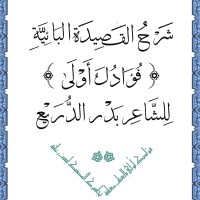 شَرْحُ القَصِيدَةِ البَائِيَّةِ
﴿ فُؤَادُكَ أَوْلَى ﴾
لِلشَّاعِرِ بَدْرِ الدُّرَيْعِ